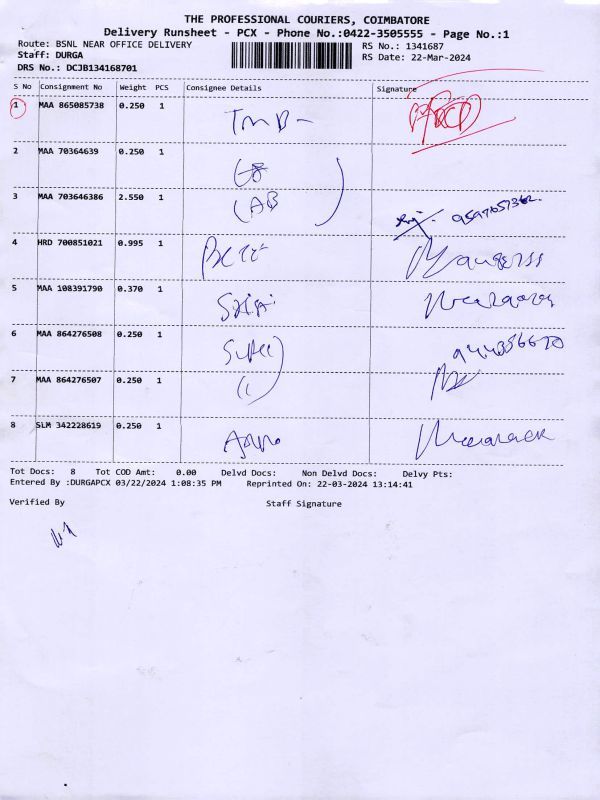 THE PROFESSIONAL COURIERS, COIMBATORE
Delivery Runsheet - PCX - Phone No.:0422-3505555 - Page No.:1
Route: BSNL NEAR OFFICE DELIVERY
RS No.: 1341687
Staff: DURGA
RS Date: 22-Mar-2024
DRS No.: DCJB134168701
S No Consignment No Weight PCS Consignee Details Signature
1 MAA 865085738 0.250 1
2 MAA 70364639 0.250 1
3 MAA 703646386 2.550 1 (AB
4 HRD 700851021 0.995 1
5 MAA 108391790 0.370 1
6 MAA 864276508 0.250 1
7 MAA 864276507 0.250 1
8 SLM 342228619 0.250 1
Tot Docs: 8 Tot COD Amt: 0.00 Delvd Docs: Non Delvd Docs: Delvy Pts:
Entered By :DURGAPCX 03/22/2024 1:08:35 PM Reprinted On: 22-03-2024 13:14:41
Verified By Staff Signature